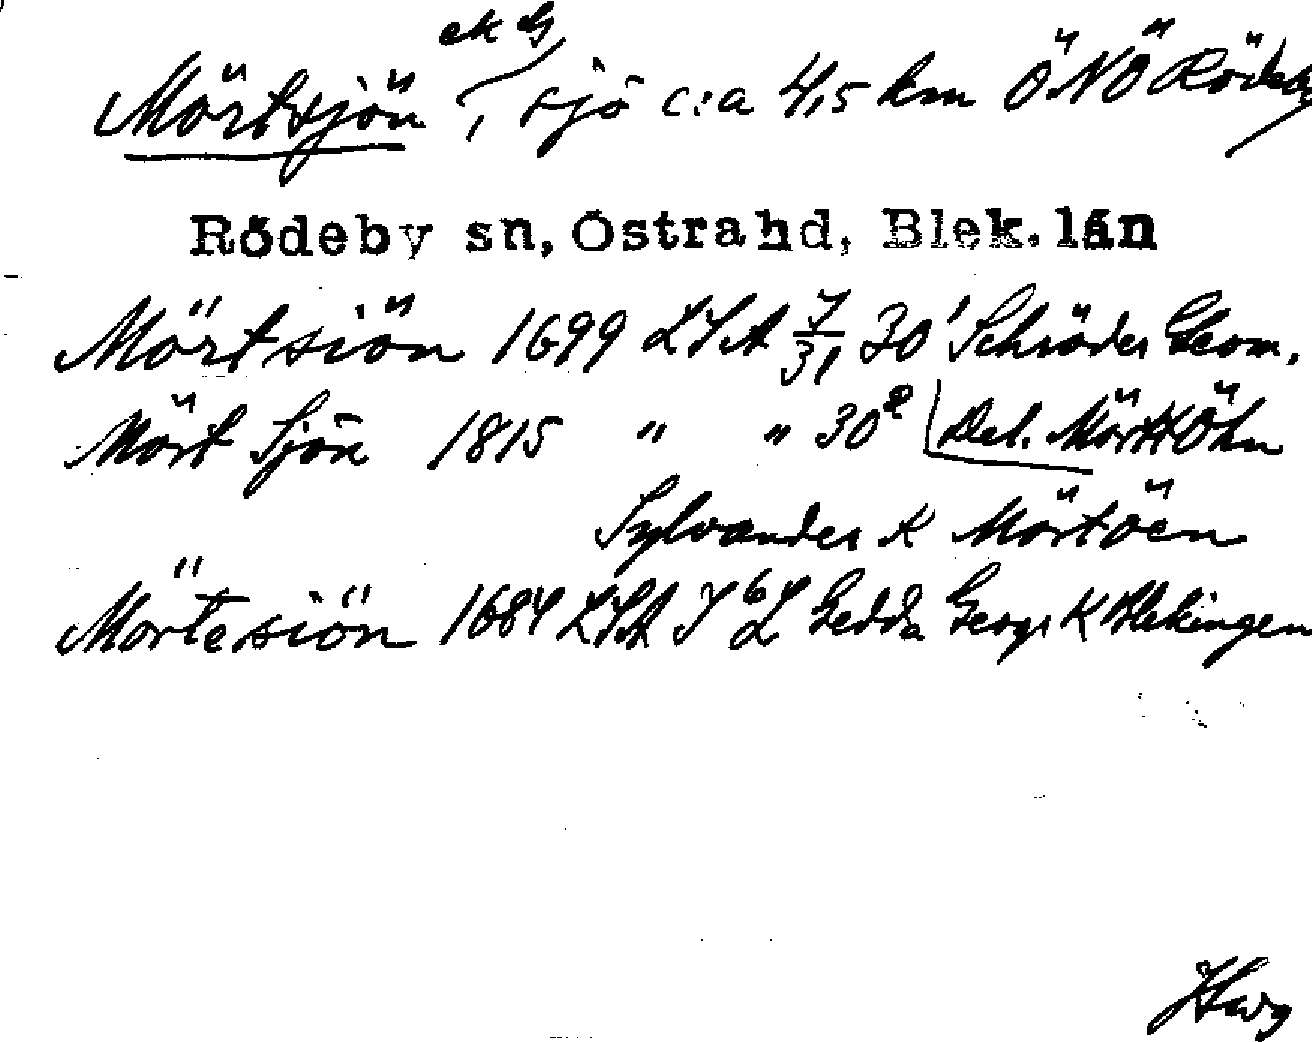 ek G
Mörtsjön, sjö c:a 4,5 km ÖNÖ Rödeby
Rödeby sn, Östra hd, Blek. län
Mörtsiön 1699 LSA 7/31 30¹ Schröder Geom.
Mört Sjön 1815 " " 30² Del. Mörtt Öhn
Sylvander K Mörtöen
Mörtesiön 1684 LSA Gedda Geogr K Blekingen